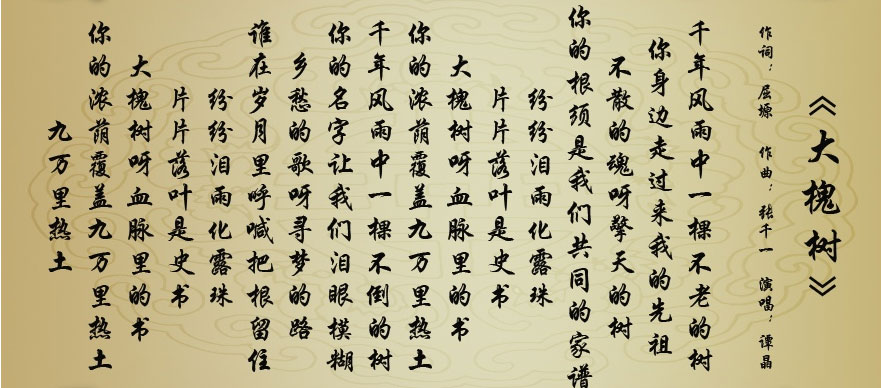 《大槐树》
作词：屈塬 作曲：张千一 演唱：谭晶
千年风雨中一棵不老的树
你身边走过来我的先祖
不散的魂呀擎天的树
你的根须是我们共同的家谱
纷纷泪雨化露珠
片片落叶是史书
大槐树呀血脉里的书
你的浓荫覆盖九万里热土
千年风雨中一棵不倒的树
你的名字让我们泪眼模糊
乡愁的歌呀寻梦的路
谁在岁月里呼喊把根留住
纷纷泪雨化露珠
片片落叶是史书
大槐树呀血脉里的书
你的浓荫覆盖九万里热土
九万里热土